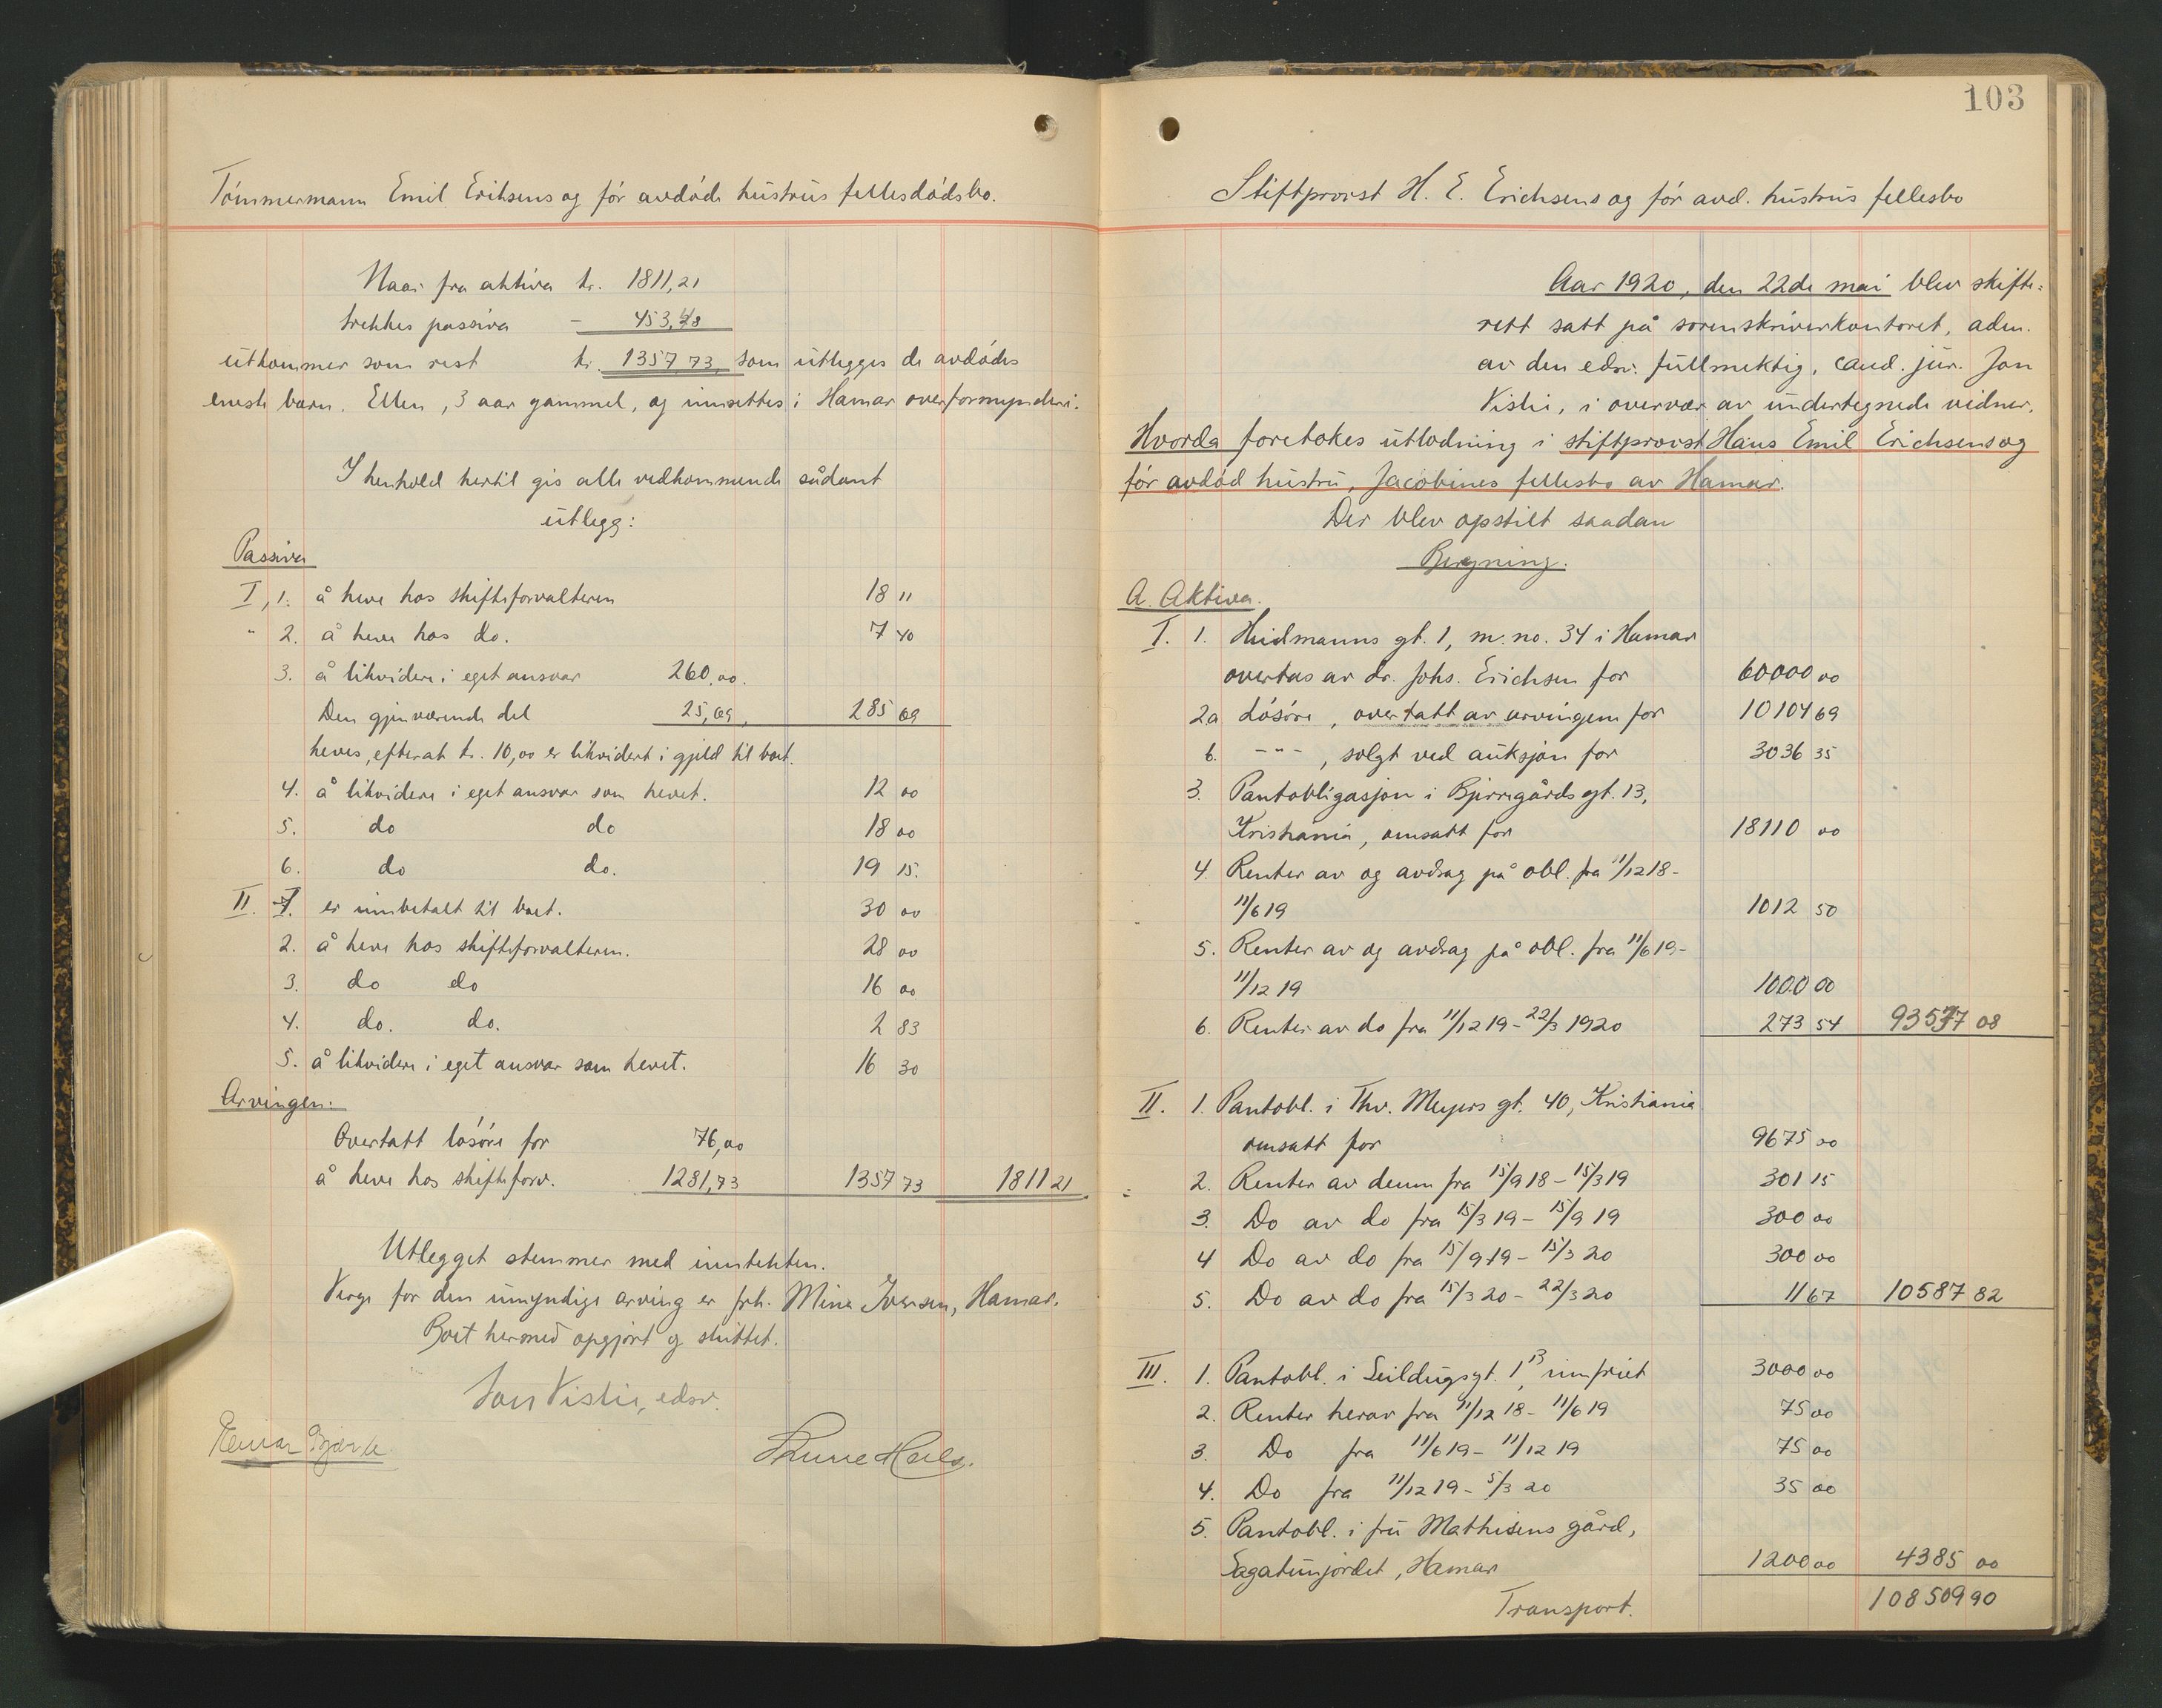 Tömmermann Emil Erichsens og för avdöde hustrus fellesdödsbo.
Naar fra aktiva kr. 1811,21
trekkes passiva - 453,48
utkommer som rest kr. 1357 73 som utlegges de avdödes
eneste barn, Ellen, 3 aar gammel, og innsettes i Hamar overformynderi.
I henhold hertil gis alle vedkommende sådant
utlegg:
Passiva
I, 1. å heve hos skifteforvalteren 18 11
" 2. å heve hos do. 7 40
3. å likvidere i eget ansvar 260,00.
Den gjenværende del 25,69, 285 69
heves, efterat kr. 10,00 er likvidert i gjeld til boet.
4. å likvidere i eget ansvar som hevet. 12 00
5. do do 18 00
6. do do. 19 15.
II. 1. er innbetalt til boet. 30 00
2. å heve hos skifteforvalteren. 28 00
3. do do 16 00
4. do. do. 2 83
5. å likvidere i eget ansvar som hevet. 16 30
Arvingen:
Overtatt lösöre for 76,00
å heve hos skifteforv. 1281,73 1357 73 1811 21
Utlegget stemmer med inntekten.
Verge for den umyndige arving er frk. Mina Iversen, Hamar.
Boet hermed opgjort og sluttet.
Jon Vislie, edsv.
103
Stiftprovst H. E. Erichsens og för avd. hustrus fellesbo
Aar 1920, den 22de mai blev skifte=
rett satt på sorenskriverkontoret, adm.
av den edsv. fullmektig, cand. jur. Jon
Vislie, i overvær av undertegnede vidner.
Hvorda foretokes utlodning i stiftprovst Hans Emil Erichsens og
för avdöd hustru, Jacobines fellesbo av Hamar.
Der blev opstilt saadan
Beregning.
A. Aktiva.
I. 1. Heidmanns gt. 1, m. no. 34 i Hamar
overtas av dr. Johs. Erichsen for 60000 00
2a Lösöre, overtatt av arvingene for 10104 69
b. -"-, solgt ved auksjon for 3036 35
3. Pantobligasjon i Bjerregårds gt. 13,
Kristiania, omsatt for 18110 00
4. Renter av og avdrag på obl. fra 11/12 18-
11/6 19 1012 50
5. Renter av og avdrag på obl. fra 11/6 19-
11/12 19 1000 00
6. Renter av do fra 11/12 19 - 22/3 1920 273 54 93537 08
II. 1. Pantobl. i Thv. Meyers gt. 40, Kristiania
omsatt for 9675 00
2. Renter av denne fra 15/9 18 - 15/3 19 301 15
3. Do av do fra 15/3 19 - 15/9 19 300 00
4 Do av do fra 15/9 19 - 15/3 20 300 00
5. Do av do fra 15/3 20 - 22/3 20 11 67 10587 82
III. 1. Pantobl. i Seildugsgt. 13, innfriet 3000 00
2. Renter herav fra 11/12 18 - 11/6 19 75 00
3. Do fra 11/6 19 - 11/12 19 75 00
4. Do fra 11/12 19 - 5/3 20 35 00
5. Pantobl. i fru Mathisens gård,
Sagatunjordet, Hamar 1200 00 4385 00
Transport. 108509 90